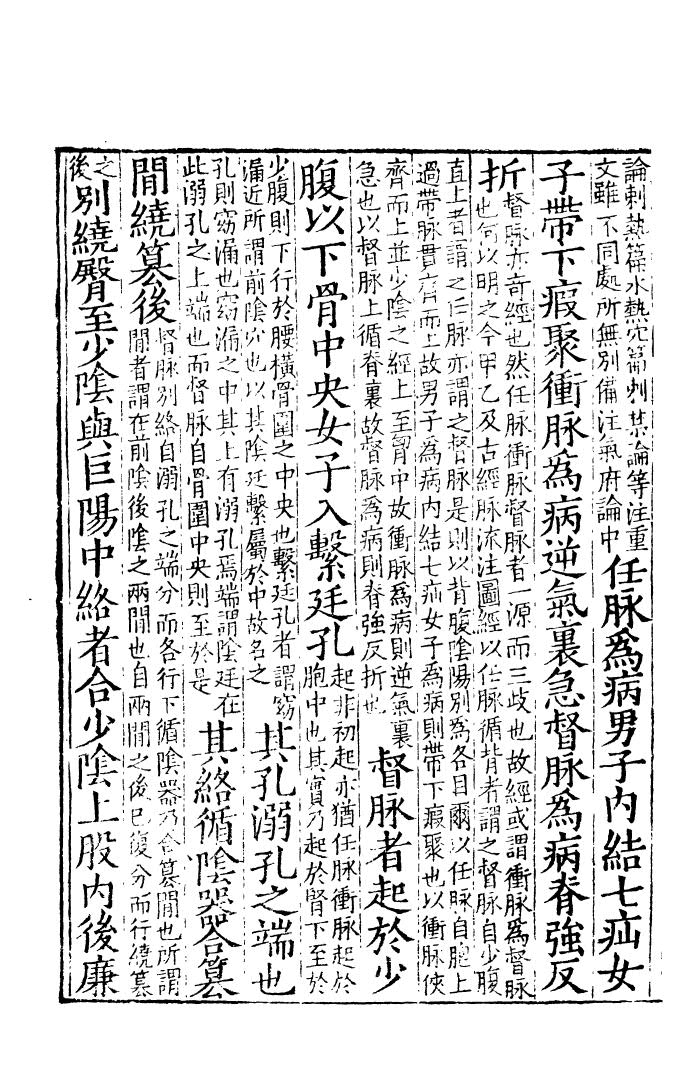 論刺熱篇水熱穴篇刺禁論等注重
文雖不同處所無別備注氣府論中
任脉爲病男子内結七疝女
子帶下瘕聚衝脉爲病逆氣裏急督脉爲病脊強反
折
督脉亦奇經也然任脉衝脉督脉者一源而三歧也故經或謂衝脉爲督脉
也何以明之今甲乙及古經脉流注圖經以任脉循背者謂之督脉自少腹
直上者謂之任脉亦謂之督脉是則以背腹陰陽別爲各目爾以任脉自胞上
過帶脉貫齊而上故男子爲病内結七疝女子爲病則帶下瘕聚也以衝脉俠
齊而上並少陰之經上至胷中故衝脉爲病則逆氣裏
急也以督脉上循脊裏故督脉爲病則脊強反折也
督脉者起於少
腹以下骨中央女子入繫廷孔
起非初起亦猶任脉衝脉起於
胞中也其實乃起於腎下至於
少腹則下行於腰橫骨圍之中央也繫廷孔者謂窈
漏近所謂前陰穴也以其陰廷繫屬於中故名之
其孔溺孔之端也
孔則窈漏也窈漏之中其上有溺孔焉端謂陰廷在
此溺孔之上端也而督脉自骨圍中央則至於是
其絡循陰器合篡
閒繞篡後
督脉別絡自溺孔之端分而各行下循陰器乃合篡閒也所謂
閒者謂在前陰後陰之兩閒也自兩閒之後已復分而行繞篡
之
後
別繞臀至少陰與巨陽中絡者合少陰上股内後廉